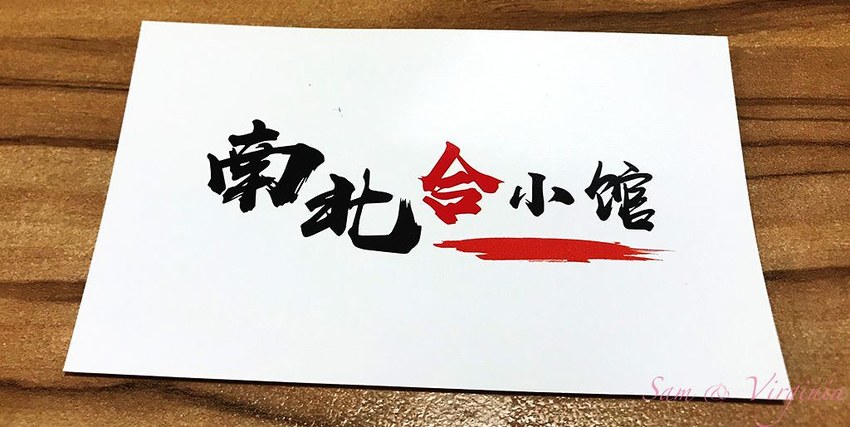 南北合小馆
Sam & Virginia